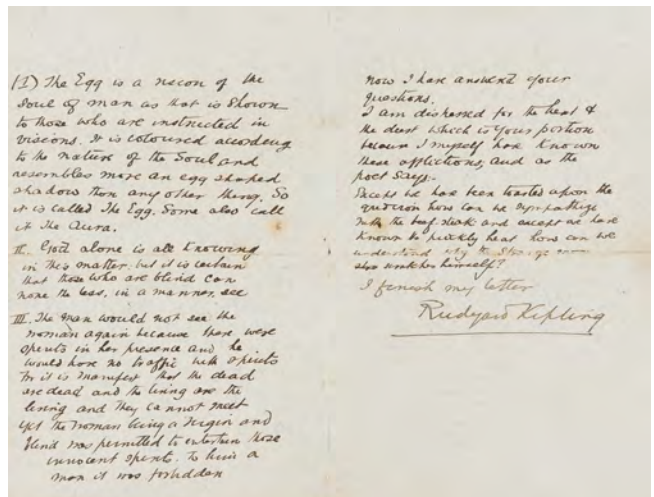 (I) The Egg is a recon of the
Soul of man as that is shown
to those who are instructed in
visions. It is coloured according
to the nature of the Soul and
resembles more an egg shaped
shadow than any other thing. So
it is called The Egg. Some also call
it The Aura.
II. God alone is all knowing
in this matter but it is certain
that those who are blind can
none the less, in a manner, see
III. The man would not see the
woman again because there were
spirits in her presence and he
would have no traffic with spirits
for it is manifest that the dead
are dead and the living are the
living and they cannot meet
yet the woman being a virgin and
blind was permitted to entertain those
innocent spirits. To him a
man it was forbidden
now I have answered your
questions.
I am distressed for the heat &
the dust which is your portion
because I myself have known
these afflictions, and as the
poet says:-
Except we have been toasted upon the
gridiron how can we sympathize
with the beef steak and except we have
known the prickly heat how can we
understand why the
also himself?
I finish my letter
Rudyard Kipling